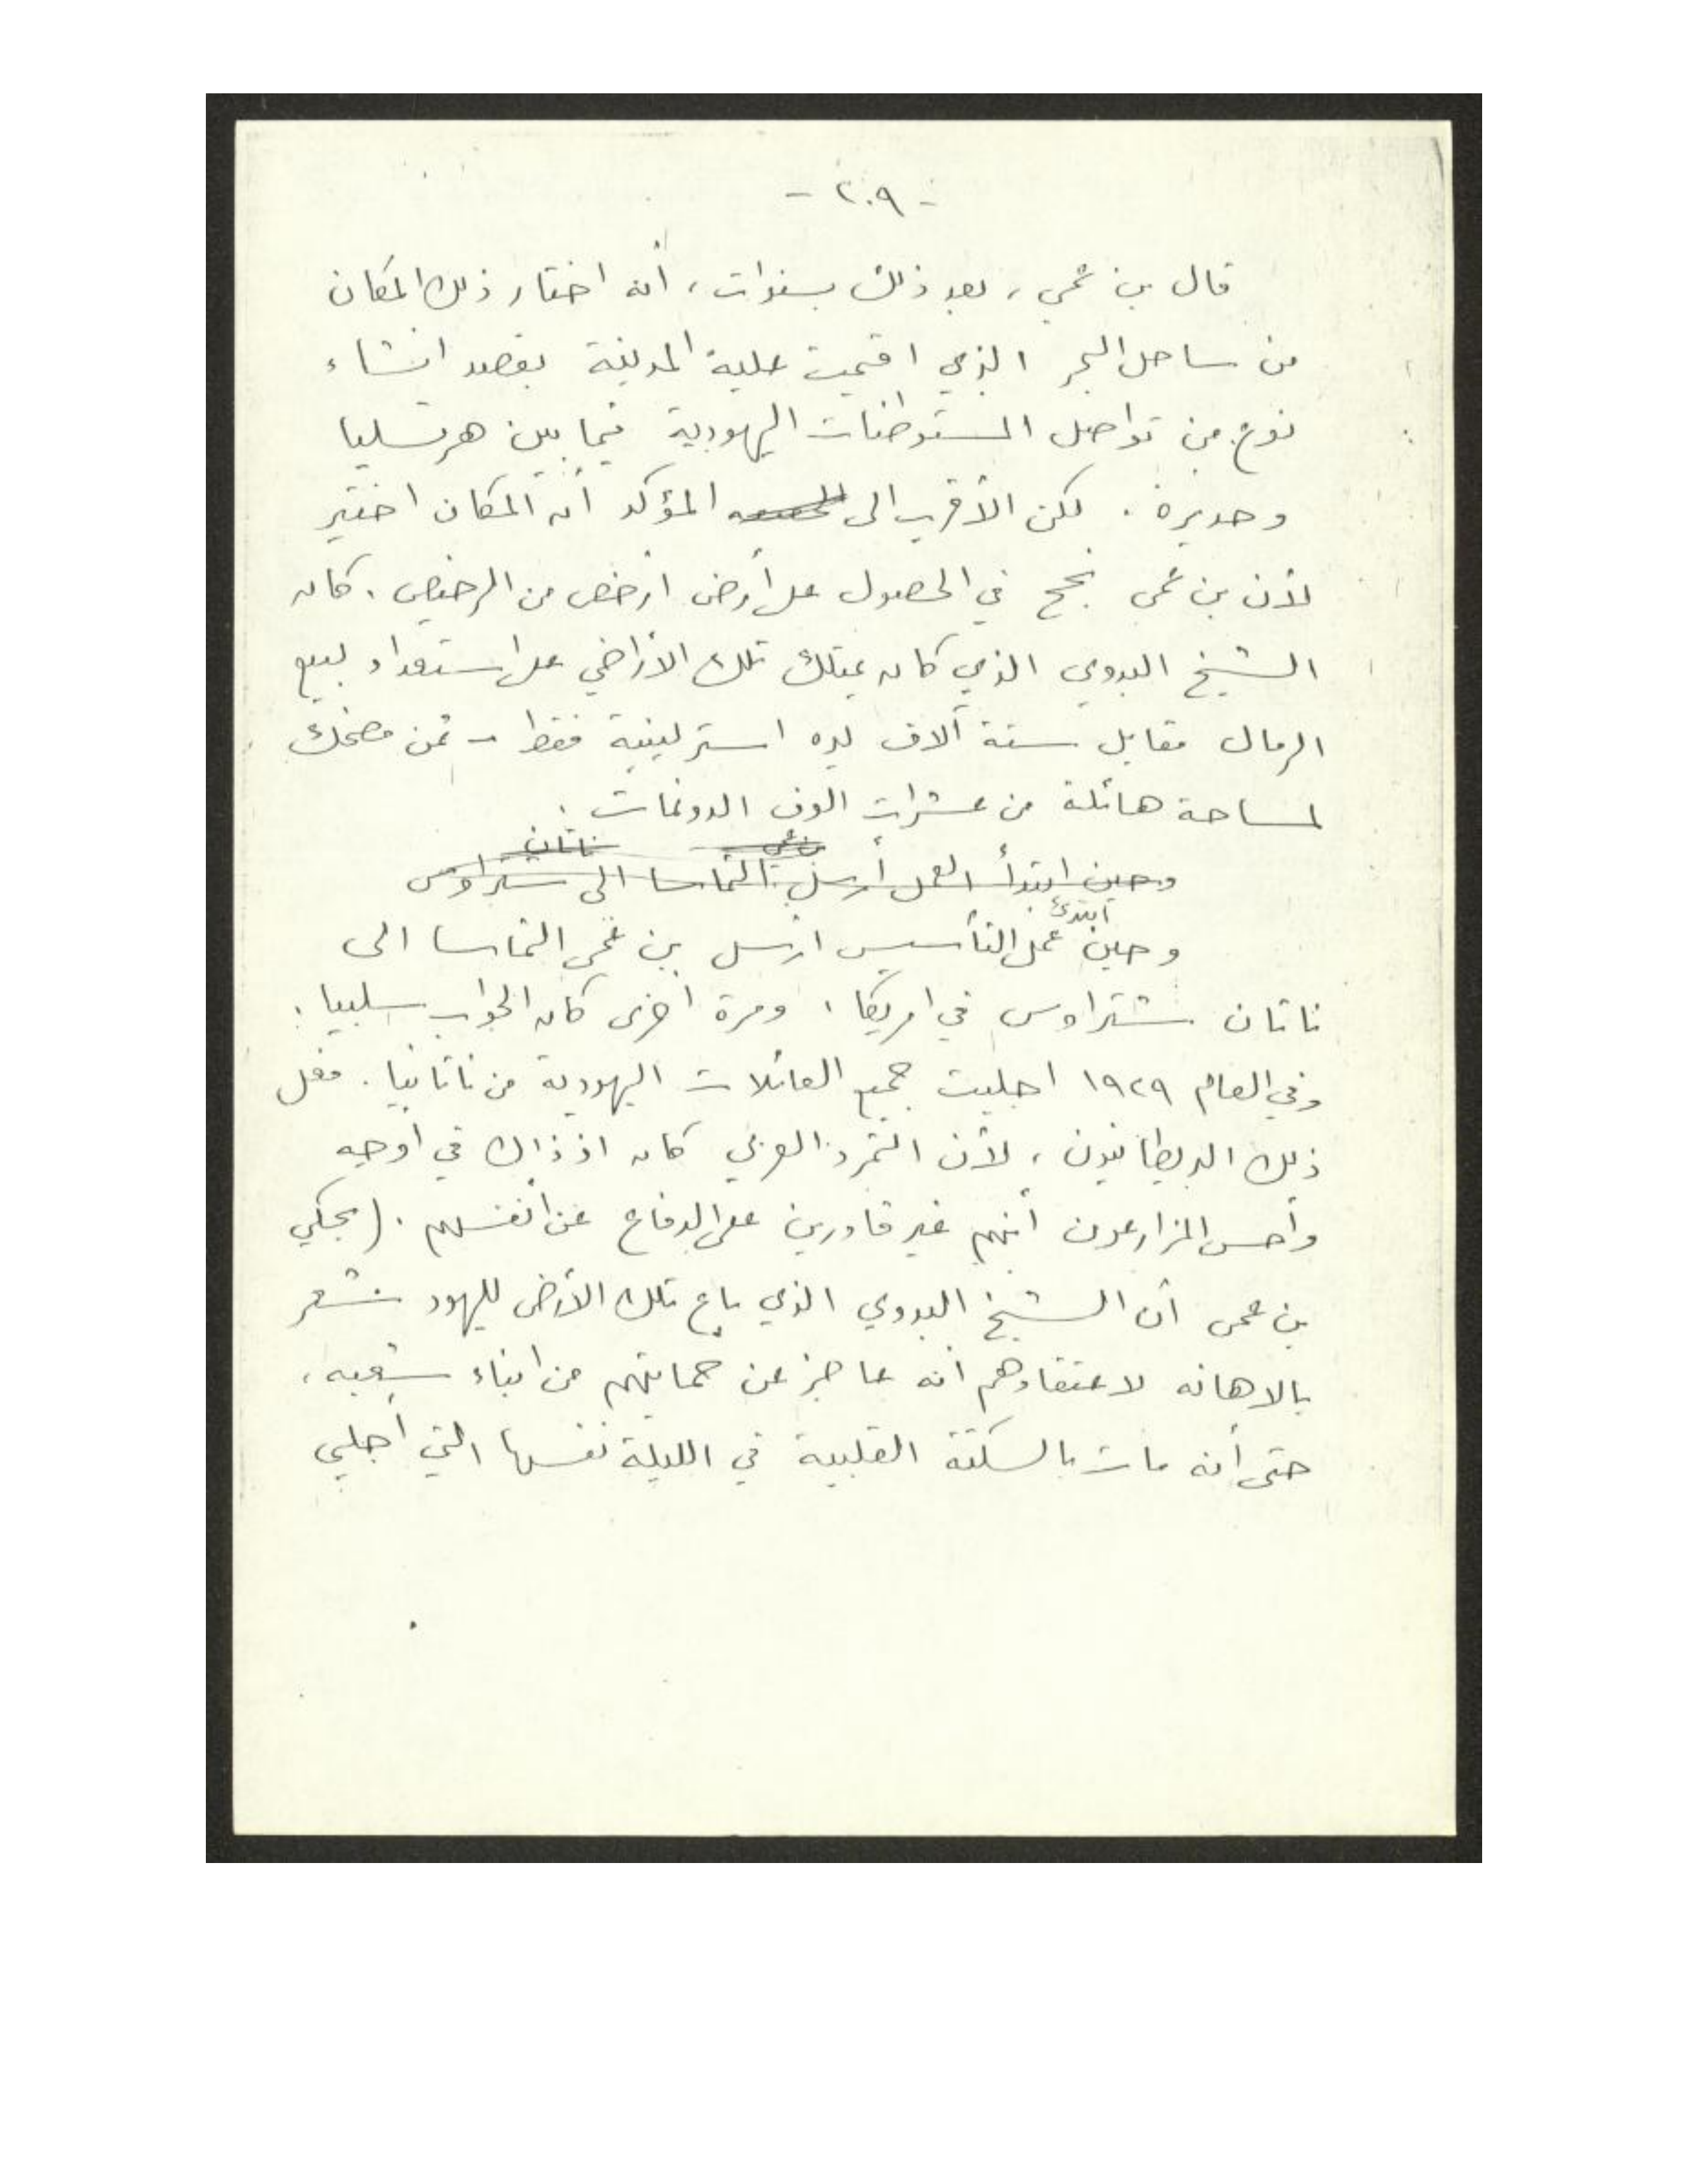 - ٢٠٩ -
قال بن عمي ، بعد ذلك بسنوات ، أنه اختار ذلك المكان
من ساحل البحر الذي اقيمت عليه المدينة بقصد انشاء
نوع من تواصل المستوطنات اليهودية فيما بين هرتسليا
وحديرة . لكن الأقرب الى المؤكد أن المكان اختير
لأن بن عمي نجح في الحصول على أرض أرخص من الرخيص . كان
الشيخ البدوي الذي كان يمتلك تلك الأراضي على استعداد لبيع
الرمال مقابل ستة آلاف ليره استرلينية فقط - ثمن مضحك
لمساحة هائلة من عشرات الوف الدونمات .
بن عمي ناتان
وحين ابتدأ العمل أرسل التماسا الى شتراوس
ابتدئ
وحين عمل التأسيس ارسل بن عمي التماسا الى
ناتان شتراوس في امريكا ، ومرة اخرى كان الجواب سلبيا .
وفي العام ١٩٢٩ اجليت جميع العائلات اليهودية من ناتانيا . فعل
ذلك البريطانيون ، لأن التمرد العربي كان اذ ذاك في أوجه
وأحس المزارعون أنهم غير قادرين على الدفاع عن أنفسهم . ( يحكي
بن عمي أن الشيخ البدوي الذي باع تلك الأرض لليهود شعر
بالاهانه لاعتقادهم أنه عاجز عن حمايتهم من ابناء شعبه ،
حتى أنه مات بالسكتة القلبية في الليلة نفسها التي أجلي